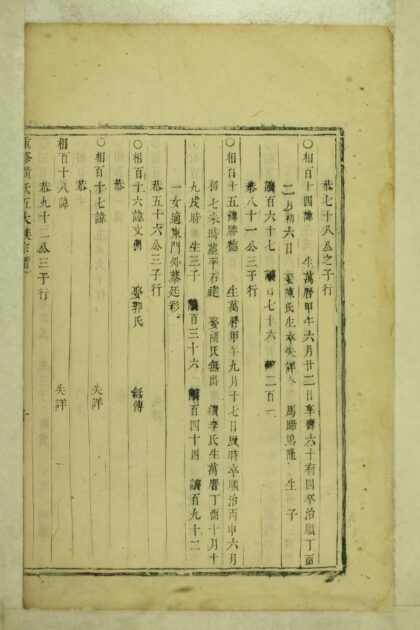 恭七十八公之子行
○相百十四諱 生萬曆甲午六月廿二日享壽六十有四卒治順丁酉
二月初六日 娶陳氏生卒失詳 馬蹄塢 生 子
讓百六十七 讓 七十六 二百一
恭八十一公三子行
○相百十五諱勝德 生萬曆甲午九月十七日辰時卒順治丙申六月
初七未時墓平石 娶胡氏無出 續李氏生萬曆丁酉十月十
九戌時 生三子 讓百三十六 讓百四十四 讓百九十二
一女適東門外蔡廷彩
恭五十六公三子行
○相百十六諱文例 娶郭氏 無傳
恭
○相百十七諱 失詳
恭十
相百十八諱 失詳
恭九十二公三子行
重修黃氏五大族宗譜